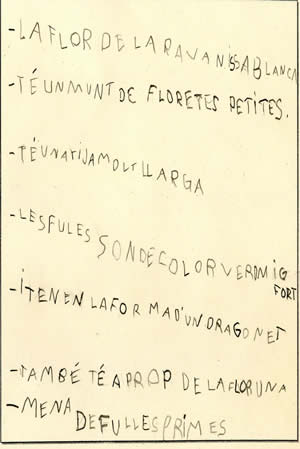 -LA FLOR DE LA RAVANISSA BLANCA
-TÉ UN MUNT DE FLORETES PETITES.
-TÉ UNA TIJA MOLT LLARGA
-LES FULES SON DE COLOR VERD MIG
FORT
-I TENEN LA FORMA D'UN DRAGONET
-TAMBÉ TÉ A PROP DE LA FLOR UNA
-MENA DE FULLES PRIMES